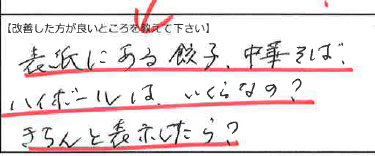 【改善した方が良いところを教えて下さい】
表紙にある餃子、中華そば、
ハイボールは、いくらなの？
きちんと表示したら？